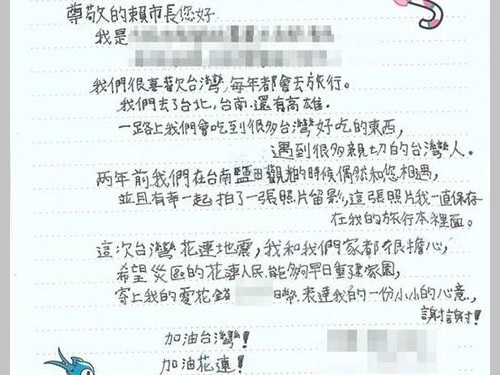 尊敬的賴市長您好
我是
我們很喜歡台灣,每年都會去旅行。
我們去了台北,台南,還有高雄。
一路上我們會吃到很多台灣好吃的東西,
遇到很多親切的台灣人。
兩年前我們在台南鹽田觀光的時候偶然和您相遇,
並且有幸一起拍了一張照片留影,這張照片我一直保存
在我的旅行本裡面。
這次台灣花蓮地震,我和我們家都很擔心,
希望災區的花蓮人民能夠早日重建家園,
寄上我的零花錢 日幣.表達我的一份小小的心意.,
謝謝!
加油台灣!
加油花蓮!